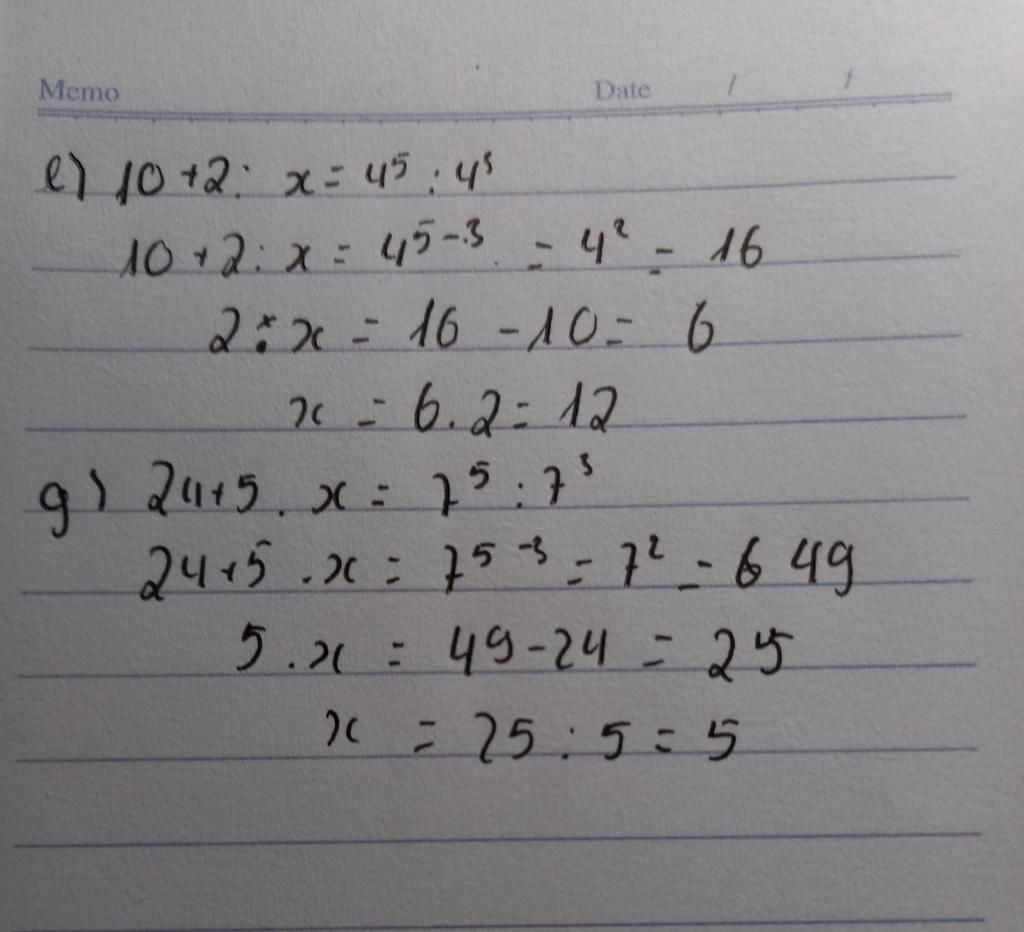 Memo Date / /
e) 10 + 2 : x = 4⁵ : 4³
10 + 2 : x = 4⁵⁻³ = 4² = 16
2 : x = 16 - 10 = 6
x = 6 . 2 = 12
g) 24 + 5 . x = 7⁵ : 7³
24 + 5 . x = 7⁵⁻³ = 7² = 6 49
5 . x = 49 - 24 = 25
x = 25 : 5 = 5